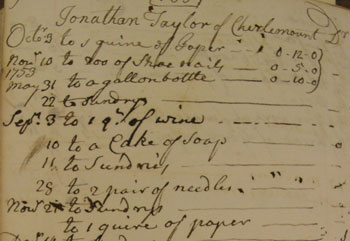 Jonathan Taylor of Charlemount Dr
Octo 3 to 1 quire of Paper 0-12-0
Novr 10 to 200 of Shoe nails 0-5-0
1753
May 31 to a gallon bottle 0-10-0
22 to Sundrys
Sepr 3 to 1 qt of wine
10 to a Cake of Soap
11 to Sundries
28 to 2 pair of needles
Novr 21 to Sundrys
to 1 quire of paper